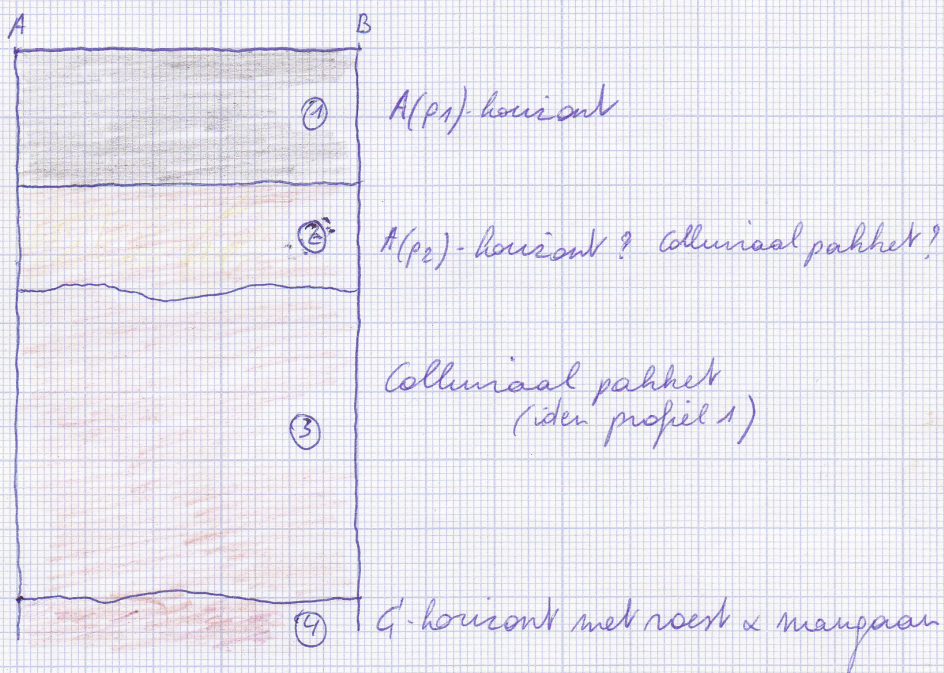 A B
① A(p1)-horizont
② A(p2)-horizont? Colluviaal pakket?
Colluviaal pakket
(idem profiel 1)
③
④ C-horizont met roest & mangaan